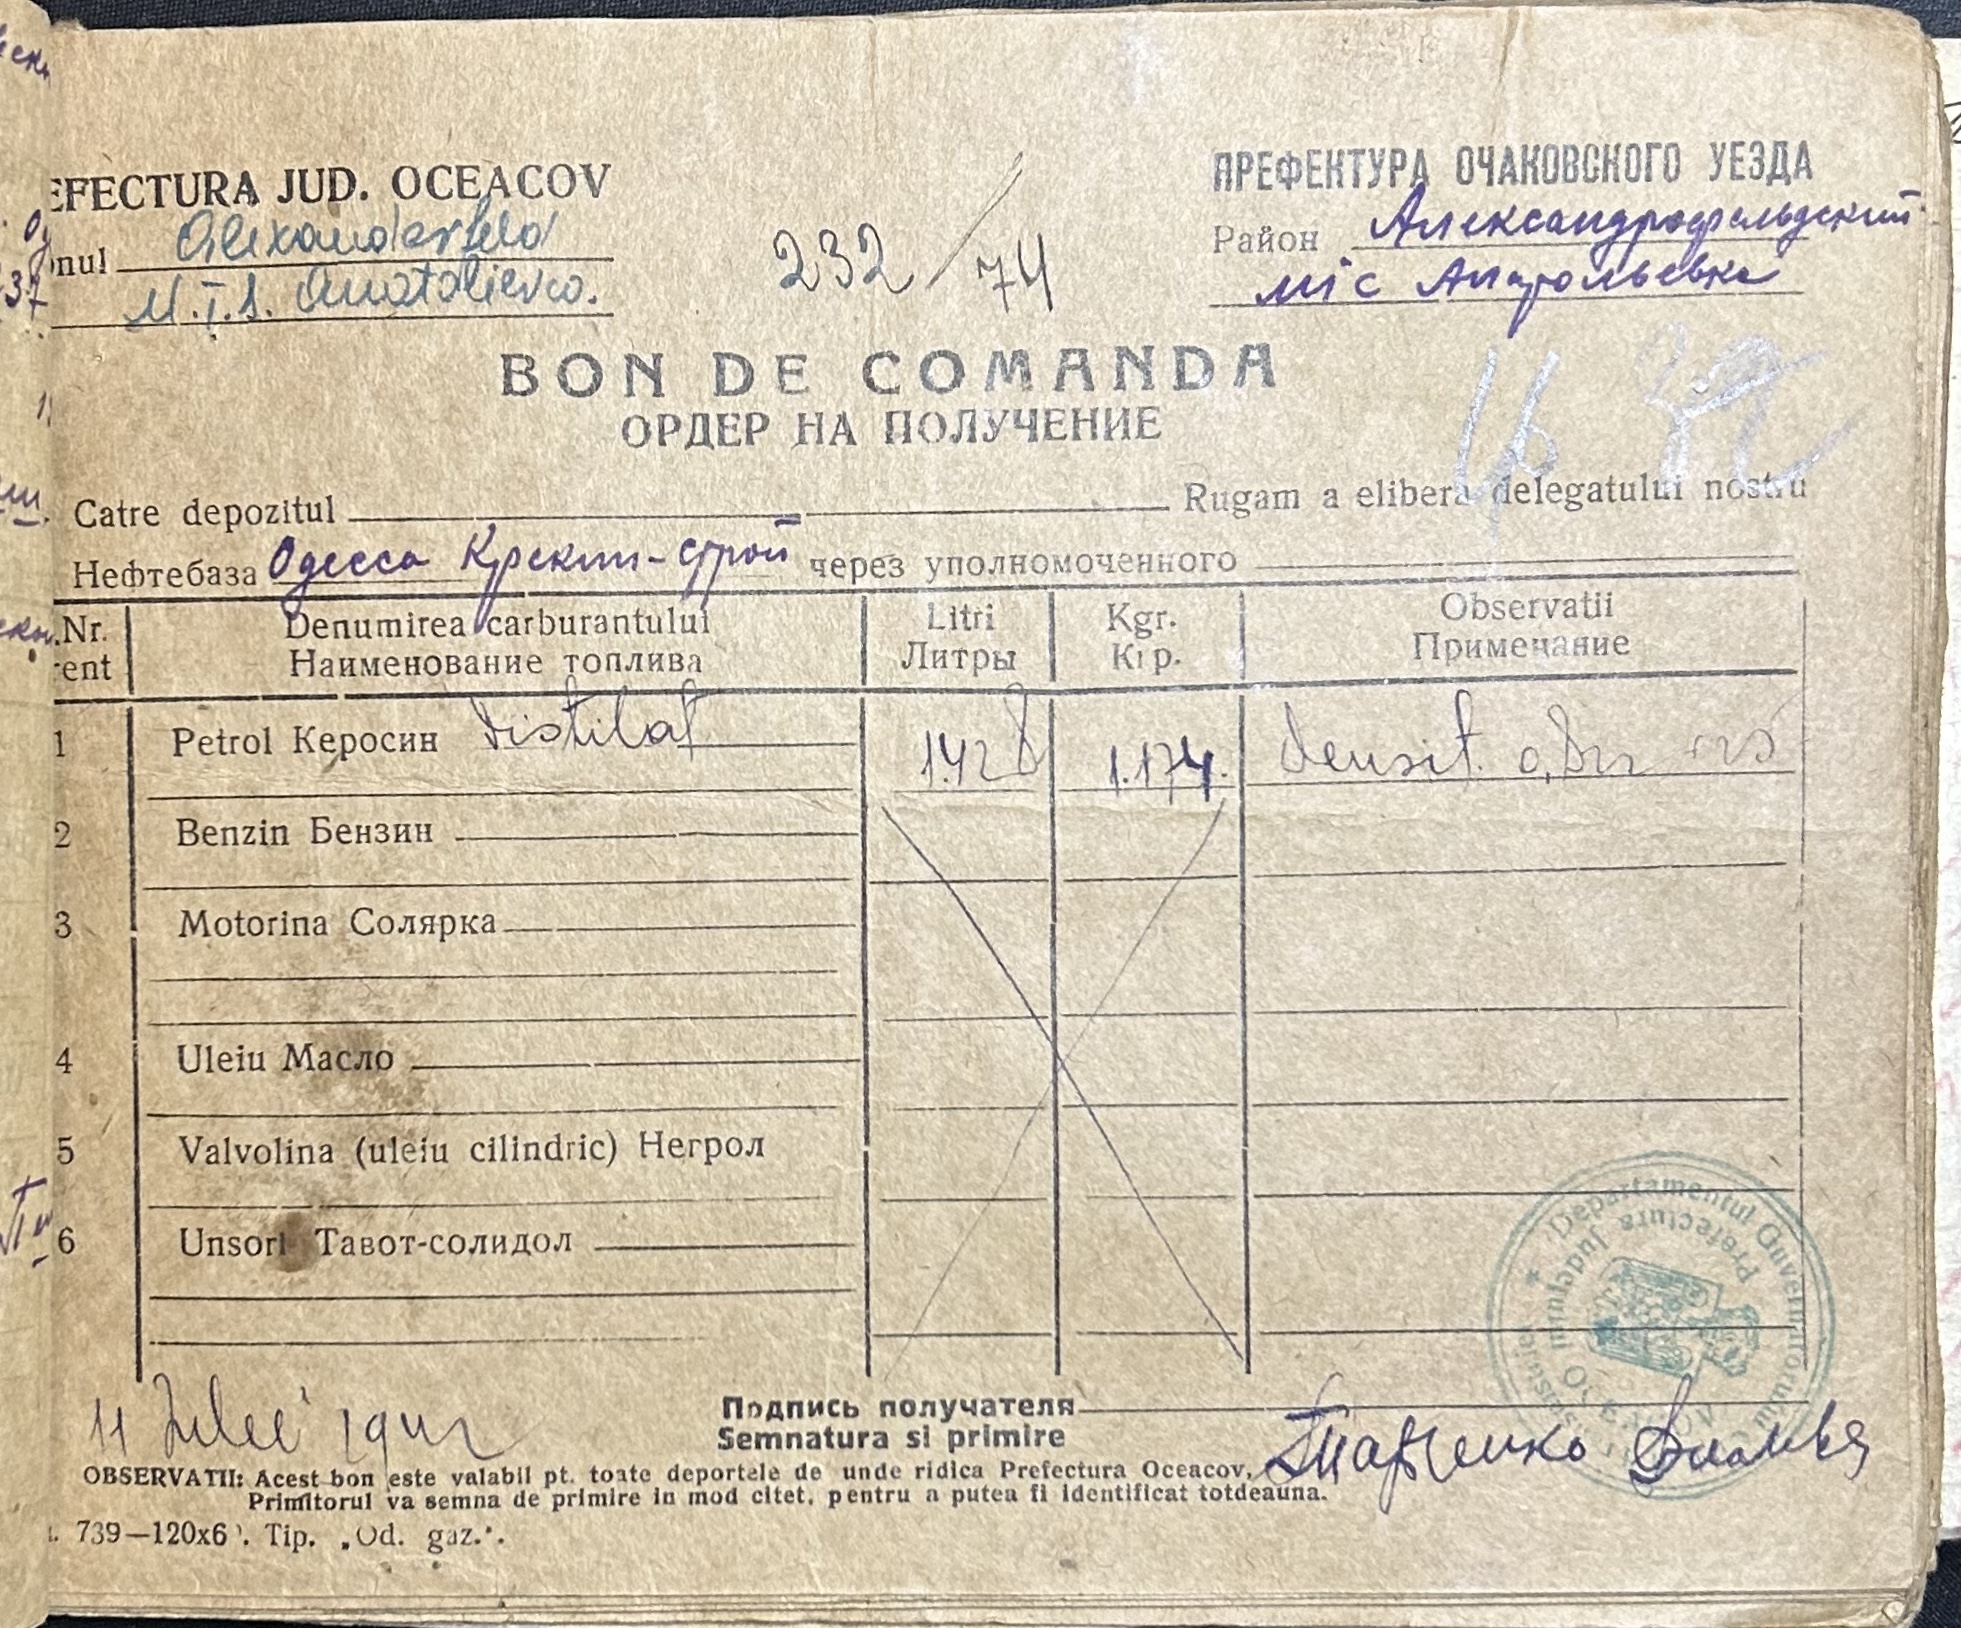 EFECTURA JUD. OCEACOV
onul Alexanderfeld
M.T.S. Anatolievca.
232/74
ПРЕФЕКТУРА ОЧАКОВСКОГО УЕЗДА
Район Александрофельдский
мтс Анатольевка
BON DE COMANDA
ОРДЕР НА ПОЛУЧЕНИЕ
Catre depozitul Rugam a elibera delegatului nostru
Нефтебаза Одесса Крекин-строй через уполномоченного
.Nr. Denumirea carburantului Litri Kgr. Observatii
rent Наименование топлива Литры Кгр. Примечание
1 Petrol Керосин Distilat 1.428 1.174. Densit.
2 Benzin Бензин
3 Motorina Солярка
4 Uleiu Масло
5 Valvolina (uleiu cilindric) Негрол
6 Unsori Тавот-солидол
Departamentul Guvernatorului
Prefectura Judeţului
11 Iulie 1942
Подпись получателя
Semnatura si primire
OBSERVATII: Acest bon este valabil pt. toate deportele de unde ridica Prefectura Oceacov,
Primitorul va semna de primire in mod citet, pentru a putea fi identificat totdeauna.
739—120x6 . Tip. „Od. gaz.".